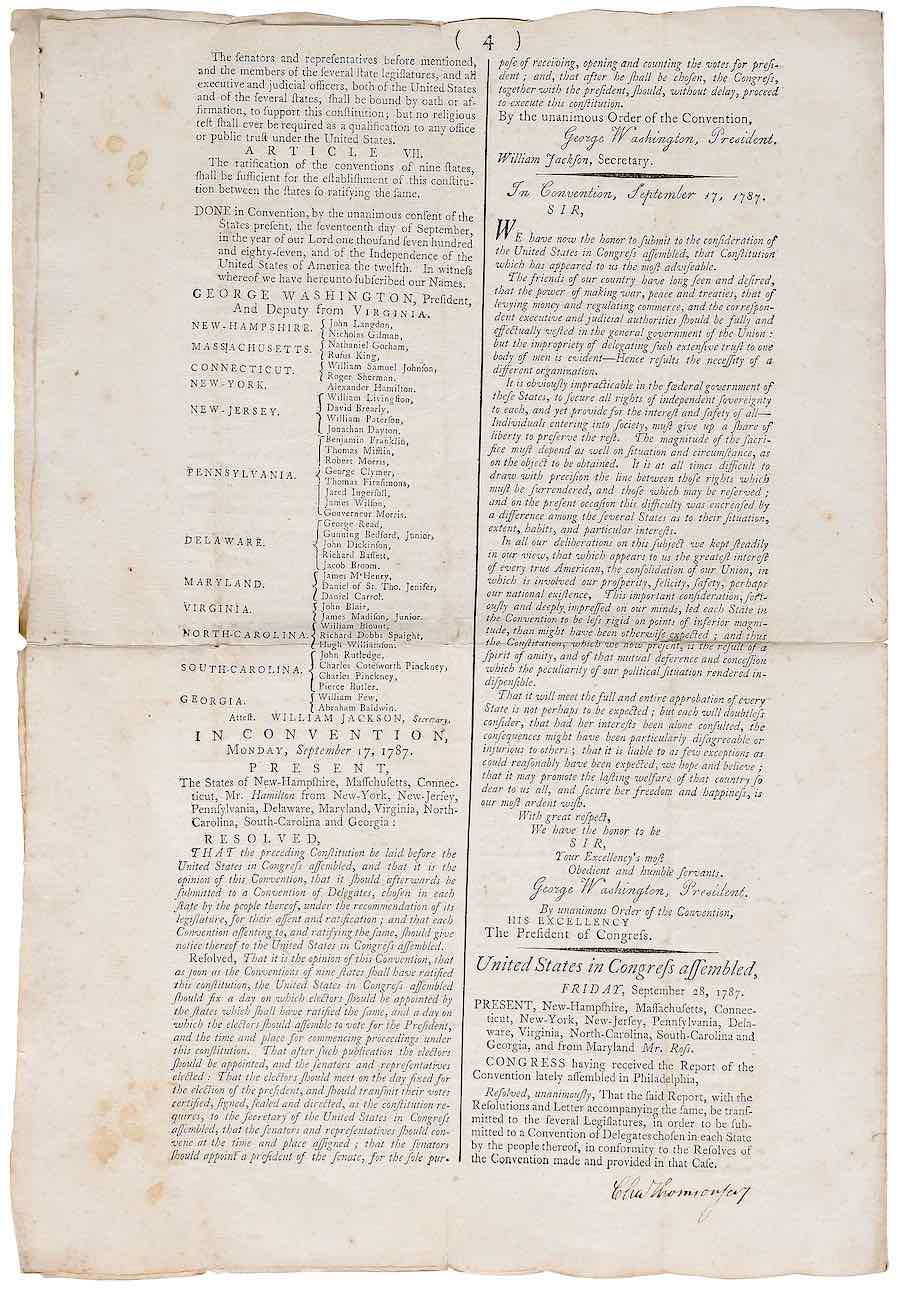 ( 4 )
The ſenators and repreſentatives before mentioned,
and the members of the ſeveral ſtate legiſlatures, and all
executive and judicial officers, both of the United States
and of the ſeveral ſtates, ſhall be bound by oath or af-
firmation, to ſupport this conſtitution; but no religious
teſt ſhall ever be required as a qualification to any office
or public truſt under the United States.
ARTICLE VII.
The ratification of the conventions of nine ſtates,
ſhall be ſufficient for the eſtabliſhment of this conſtitu-
tion between the ſtates ſo ratifying the ſame.
DONE in Convention, by the unanimous conſent of the
States preſent, the ſeventeenth day of September,
in the year of our Lord one thouſand ſeven hundred
and eighty-ſeven, and of the Independence of the
United States of America the twelfth. In witneſs
whereof we have hereunto ſubſcribed our Names.
GEORGE WASHINGTON, Preſident,
And Deputy from VIRGINIA.
NEW-HAMPSHIRE. { John Langdon,
Nicholas Gilman,
MASSACHUSETTS. { Nathaniel Gorham,
Rufus King,
CONNECTICUT. { William Samuel Johnſon,
Roger Sherman.
NEW-YORK. Alexander Hamilton.
NEW-JERSEY. { William Livingſton,
David Brearly,
William Paterſon,
Jonathan Dayton.
PENNSYLVANIA. { Benjamin Franklin,
Thomas Mifflin,
Robert Morris,
George Clymer,
Thomas Fitzſimons,
Jared Ingerſoll,
James Wilſon,
Gouverneur Morris.
DELAWARE. { George Read,
Gunning Bedford, Junior,
John Dickinſon,
Richard Baſſett,
Jacob Broom.
MARYLAND. { James M'Henry,
Daniel of St. Tho. Jenifer,
Daniel Carrol.
VIRGINIA. { John Blair,
James Madiſon, Junior.
NORTH-CAROLINA. { William Blount,
Richard Dobbs Spaight,
Hugh Williamſon.
SOUTH-CAROLINA. { John Rutledge,
Charles Coteſworth Pinckney,
Charles Pinckney,
Pierce Butler.
GEORGIA. { William Few,
Abraham Baldwin.
Atteſt. WILLIAM JACKSON, Secretary.
IN CONVENTION,
MONDAY, September 17, 1787.
PRESENT,
The States of New-Hampſhire, Maſſachuſetts, Connec-
ticut, Mr. Hamilton from New-York, New-Jerſey,
Pennſylvania, Delaware, Maryland, Virginia, North-
Carolina, South-Carolina and Georgia:
RESOLVED,
THAT the preceding Conſtitution be laid before the
United States in Congreſs aſſembled, and that it is the
opinion of this Convention, that it ſhould afterwards be
ſubmitted to a Convention of Delegates, choſen in each
ſtate by the people thereof, under the recommendation of its
legiſlature, for their aſſent and ratification; and that each
Convention aſſenting to, and ratifying the ſame, ſhould give
notice thereof to the United States in Congreſs aſſembled.
Reſolved, That it is the opinion of this Convention, that
as ſoon as the Conventions of nine ſtates ſhall have ratified
this conſtitution, the United States in Congreſs aſſembled
ſhould fix a day on which electors ſhould be appointed by
the ſtates which ſhall have ratified the ſame, and a day on
which the electors ſhould aſſemble to vote for the Preſident,
and the time and place for commencing proceedings under
this conſtitution. That after ſuch publication the electors
ſhould be appointed, and the ſenators and repreſentatives
elected: That the electors ſhould meet on the day fixed for
the election of the preſident, and ſhould tranſmit their votes
certified, ſigned, ſealed and directed, as the conſtitution re-
quires, to the ſecretary of the United States in Congreſs
aſſembled, that the ſenators and repreſentatives ſhould con-
vene at the time and place aſſigned; that the ſenators
ſhould appoint a preſident of the ſenate, for the ſole pur-
poſe of receiving, opening and counting the votes for preſi-
dent; and, that after he ſhall be choſen, the Congreſs,
together with the preſident, ſhould, without delay, proceed
to execute this conſtitution.
By the unanimous Order of the Convention,
George Waſhington, Preſident.
William Jackſon, Secretary.
In Convention, September 17, 1787.
SIR,
WE have now the honor to ſubmit to the conſideration of
the United States in Congreſs aſſembled, that Conſtitution
which has appeared to us the moſt adviſeable.
The friends of our country have long ſeen and deſired,
that the power of making war, peace and treaties, that of
levying money and regulating commerce, and the correſpon-
dent executive and judicial authorities ſhould be fully and
effectually veſted in the general government of the Union:
but the impropriety of delegating ſuch extenſive truſt to one
body of men is evident—Hence reſults the neceſſity of a
different organization.
It is obviouſly impracticable in the fœderal government of
theſe States, to ſecure all rights of independent ſovereignty
to each, and yet provide for the intereſt and ſafety of all—
Individuals entering into ſociety, muſt give up a ſhare of
liberty to preſerve the reſt. The magnitude of the ſacri-
fice muſt depend as well on ſituation and circumſtance, as
on the object to be obtained. It is at all times difficult to
draw with preciſion the line between thoſe rights which
muſt be ſurrendered, and thoſe which may be reſerved;
and on the preſent occaſion this difficulty was encreaſed by
a difference among the ſeveral States as to their ſituation,
extent, habits, and particular intereſts.
In all our deliberations on this ſubject we kept ſteadily
in our view, that which appears to us the greateſt intereſt
of every true American, the conſolidation of our Union, in
which is involved our proſperity, felicity, ſafety, perhaps
our national exiſtence. This important conſideration, ſeri-
ouſly and deeply impreſſed on our minds, led each State in
the Convention to be leſs rigid on points of inferior magni-
tude, than might have been otherwiſe expected; and thus
the Conſtitution, which we now preſent, is the reſult of a
ſpirit of amity, and of that mutual deference and conceſſion
which the peculiarity of our political ſituation rendered in-
diſpenſible.
That it will meet the full and entire approbation of every
State is not perhaps to be expected; but each will doubtleſs
conſider, that had her intereſts been alone conſulted, the
conſequences might have been particularly diſagreeable or
injurious to others; that it is liable to as few exceptions as
could reaſonably have been expected, we hope and believe;
that it may promote the laſting welfare of that country ſo
dear to us all, and ſecure her freedom and happineſs, is
our moſt ardent wiſh.
With great reſpect,
We have the honor to be
SIR,
Your Excellency's moſt
Obedient and humble ſervants.
George Waſhington, Preſident.
By unanimous Order of the Convention,
HIS EXCELLENCY
The Preſident of Congreſs.
United States in Congreſs aſſembled,
FRIDAY, September 28, 1787.
PRESENT, New-Hampſhire, Maſſachuſetts, Connec-
ticut, New-York, New-Jerſey, Pennſylvania, Dela-
ware, Virginia, North-Carolina, South-Carolina and
Georgia, and from Maryland Mr. Roſs.
CONGRESS having received the Report of the
Convention lately aſſembled in Philadelphia,
Reſolved, unanimouſly, That the ſaid Report, with the
Reſolutions and Letter accompanying the ſame, be tranſ-
mitted to the ſeveral Legiſlatures, in order to be ſub-
mitted to a Convention of Delegates choſen in each State
by the people thereof, in conformity to the Reſolves of
the Convention made and provided in that Caſe.
Chas Thomson ſecy